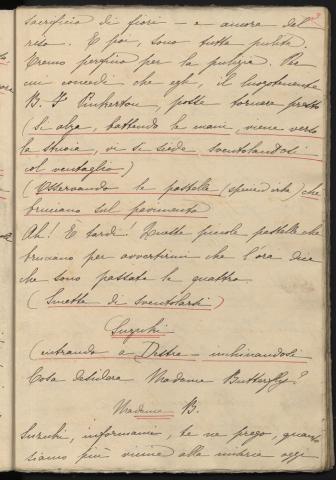 sacrificio di fiori - e ancora del
riso. E poi, sono tutta pulita.
Tremo perfino per la pulizia. Che
mi concedi che egli, il luogotenente
B. F. Pinkerton, posse tornare presto
(Si alza, battendo le mani, viene verso
la stuoia, vi si siede, sventolandosi
col ventaglio)
(Osservando le pastelle che
bruciano sul pavimento
Ah! È tardi! Queste piccole pastelle che
bruciano per avvertirmi che l'ora dice
che sono passate le quattro.
(Smette di sventolarsi)
Suzuki
(entrando a Destra - inchinandosi
Cosa desidera Madame Butterfly?
Madame B.
Suzuki, informami, te ne prego, quanto
siamo più vicine alla miseria oggi